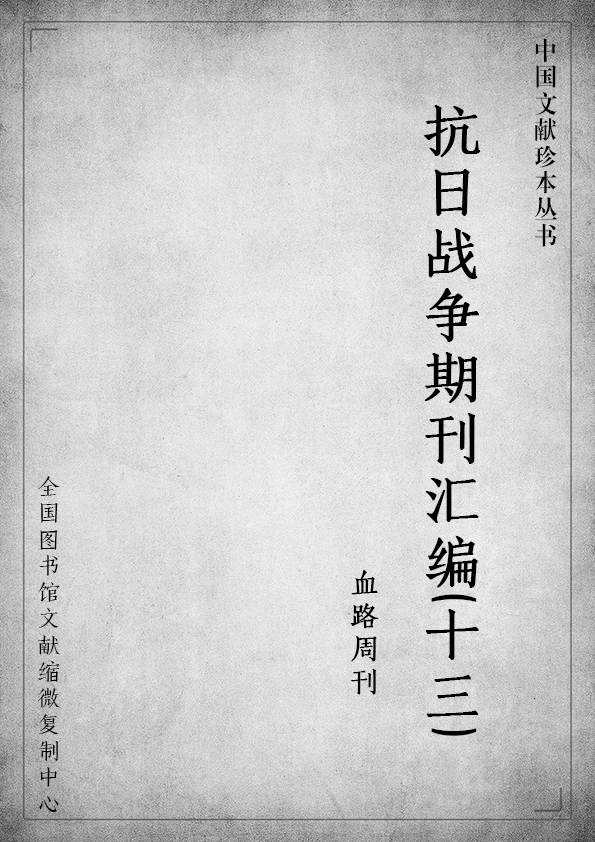 中国文献珍本丛书
抗日战争期刊汇编(十三)
血路周刊
全国图书馆文献缩微复制中心